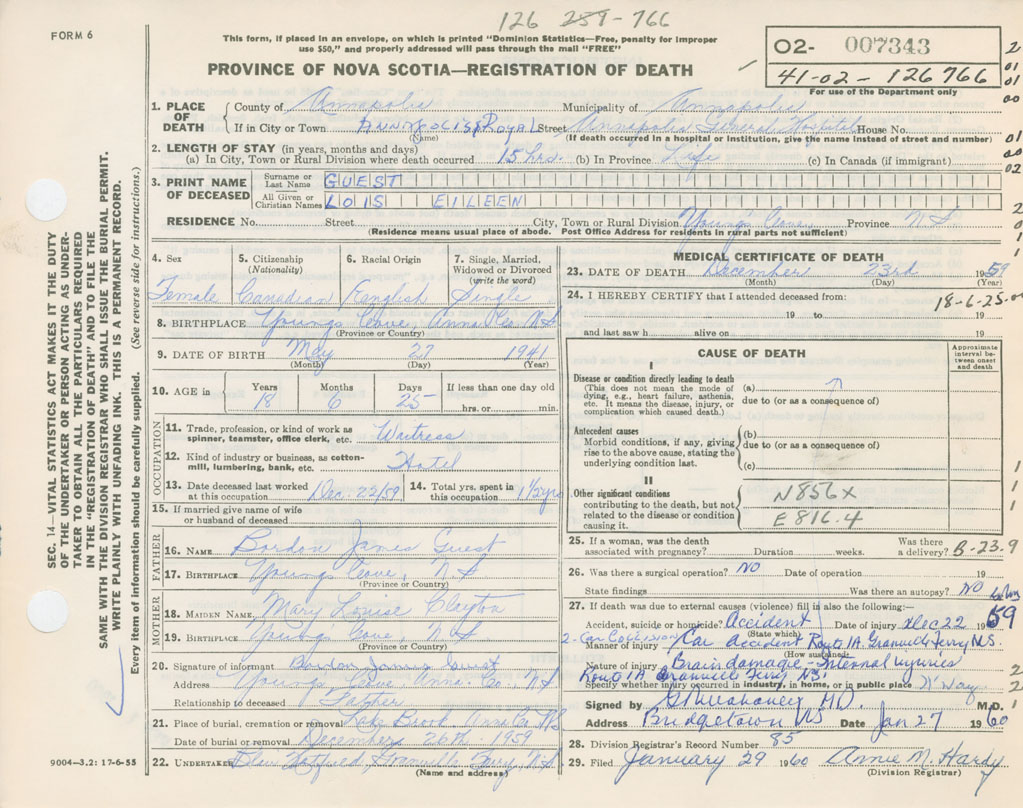 126 259-766
FORM 6
This form, if placed in an envelope, on which is printed "Dominion Statistics—Free, penalty for improper
use $50," and properly addressed will pass through the mail "FREE"
PROVINCE OF NOVA SCOTIA—REGISTRATION OF DEATH
02- 007343
41-02-126766
For use of the Department only
1. PLACE OF DEATH
County of Annapolis Municipality of Annapolis
If in City or Town ANNAPOLIS ROYAL Street Annapolis General Hospital House No.
(Name) (If death occurred in a hospital or institution, give the name instead of street and number)
2. LENGTH OF STAY (in years, months and days)
(a) In City, Town or Rural Division where death occurred 15 hrs. (b) In Province Life (c) In Canada (if immigrant)
3. PRINT NAME OF DECEASED
Surname or Last Name GUEST
All Given or Christian Names LOIS EILEEN
RESIDENCE No. Street City, Town or Rural Division Young's Cove Province N S
(Residence means usual place of abode. Post Office Address for residents in rural parts not sufficient)
4. Sex 5. Citizenship (Nationality) 6. Racial Origin 7. Single, Married, Widowed or Divorced (write the word)
Female Canadian English Single
8. BIRTHPLACE Youngs Cove, Anna. Co. N S
(Province or Country)
9. DATE OF BIRTH May 27 1941
(Month) (Day) (Year)
10. AGE in Years 18 Months 6 Days 25 If less than one day old hrs. or min.
OCCUPATION
11. Trade, profession, or kind of work as spinner, teamster, office clerk, etc. Waitress
12. Kind of industry or business, as cotton-mill, lumbering, bank, etc. Hotel
13. Date deceased last worked at this occupation Dec. 22/59 14. Total yrs. spent in this occupation 1 1/2 yrs
15. If married give name of wife or husband of deceased
FATHER
16. NAME Bordon James Guest
17. BIRTHPLACE Youngs Cove, N S
(Province or Country)
MOTHER
18. MAIDEN NAME Mary Louise Clayton
19. BIRTHPLACE Youngs Cove, N S
(Province or Country)
20. Signature of informant Bordon James Guest
Address Youngs Cove, Anna. Co., N S
Relationship to deceased Father
21. Place of burial, cremation or removal Brook Anna Co NS
Date of burial or removal December 26th 1959
22. UNDERTAKER Granville Ferry, N.S.
(Name and address)
MEDICAL CERTIFICATE OF DEATH
23. DATE OF DEATH December 23rd 1959
(Month) (Day) (Year)
24. I HEREBY CERTIFY that I attended deceased from:
18-6-25
19 to 19
and last saw h alive on 19
CAUSE OF DEATH
Approximate interval between onset and death
I
Disease or condition directly leading to death
(This does not mean the mode of dying, e.g., heart failure, asthenia, etc. It means the disease, injury, or complication which caused death.)
(a)
due to (or as a consequence of)
Antecedent causes
Morbid conditions, if any, giving rise to the above cause, stating the underlying condition last.
(b)
due to (or as a consequence of)
(c)
II
Other significant conditions
contributing to the death, but not related to the disease or condition causing it.
N856X
E816.4
25. If a woman, was the death associated with pregnancy? Duration weeks. Was there a delivery? B-23.9
26. Was there a surgical operation? NO Date of operation 19
State findings Was there an autopsy? NO
27. If death was due to external causes (violence) fill in also the following:—
Accident, suicide or homicide? Accident Date of injury Dec 22 1959
(State which)
2. Car Collision
Manner of injury Car accident Route 1A Granville Ferry N.S.
(How sustained)
Nature of injury Brain damage - Internal injuries
Route 1A Granville Ferry NS
Specify whether injury occurred in industry, in home, or in public place H'way
Signed by M.D. M.D.
Address Bridgetown NS Date Jan 27 1960
28. Division Registrar's Record Number 85
29. Filed January 29 1960 Annie M. Hardy
(Division Registrar)
SEC. 14—VITAL STATISTICS ACT MAKES IT THE DUTY
OF THE UNDERTAKER OR PERSON ACTING AS UNDER-
TAKER TO OBTAIN ALL THE PARTICULARS REQUIRED
IN THE "REGISTRATION OF DEATH" AND TO FILE THE
SAME WITH THE DIVISION REGISTRAR WHO SHALL ISSUE THE BURIAL PERMIT.
WRITE PLAINLY WITH UNFADING INK. THIS IS A PERMANENT RECORD.
Every item of information should be carefully supplied. (See reverse side for instructions.)
9004—3.2: 17-6-55